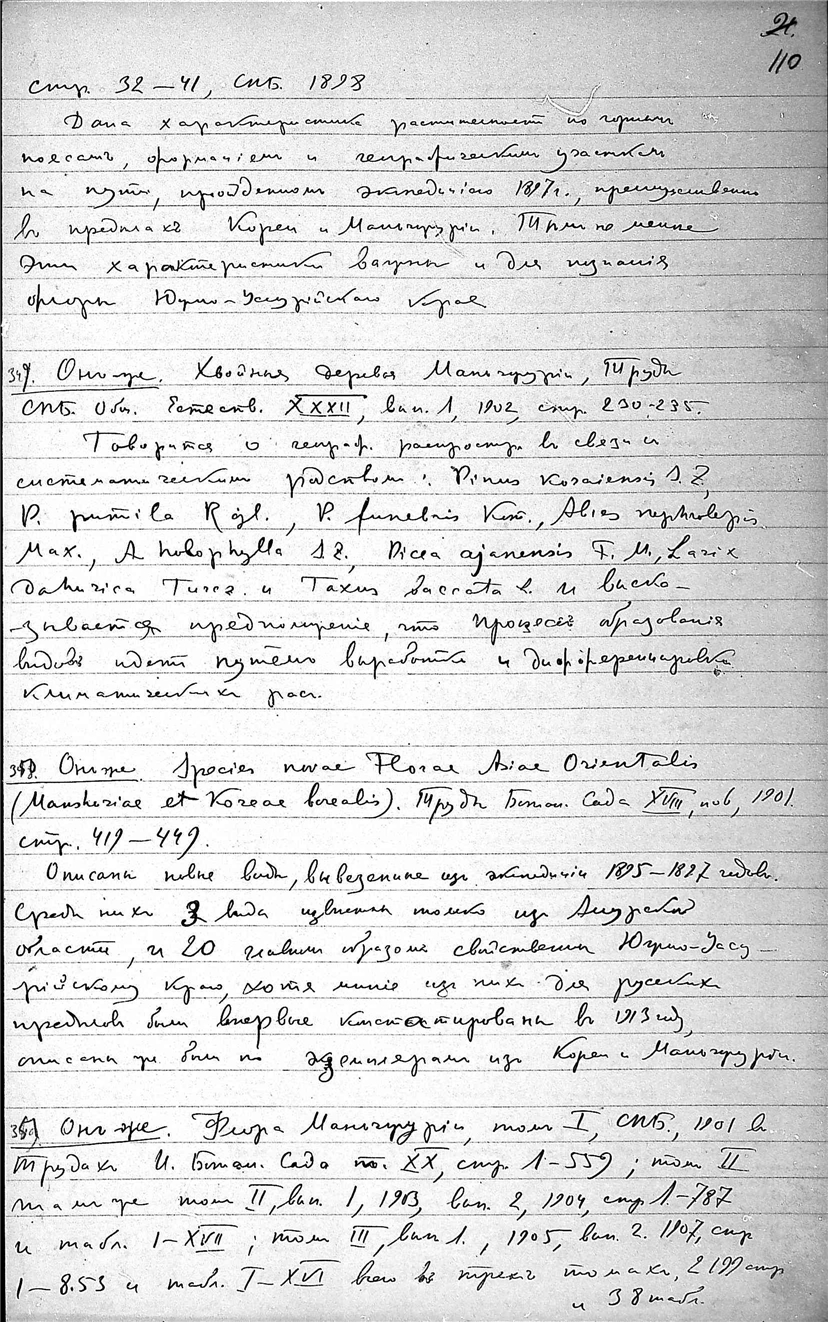 21.
110
стр. 32–41, СПБ. 1898
Дана характеристика растительности по горным
поясамъ, формаціям и географическим участкам
на пути, пройденном экспедиціею 1897 г., преимущественно
въ предѣлахъ Кореи и Маньчжуріи. Тѣм не менѣе
эти характеристики важны и для познанія
флоры Южно-Уссурійскаго края
349. Онъ-же. Хвойныя деревья Маньчжуріи, Труды
СПБ. Общ. Естеств. XXXII, вып. 1, 1902, стр. 230-235.
Говорится о географ. распростр. в связи с
систематическим родством: Pinus koraiensis S. Z.,
P. pumila Rgl., P. funebris Kom., Abies nephrolepis
Max., A holophylla S. Z., Picea ajanensis F. M., Larix
dahurica Turcz. и Taxus baccata L. и выска–
–зывается предположеніе, что процессъ образованія
видовъ идетъ путёмъ выработки и дифференцировки
климатическихъ рас.
350. Онъ-же. Species novae Florae Asiae Orientalis
(Manshuriae et Koreae borealis). Труды Ботан. Сада XVIII, 1901.
стр. 419–449.
Описаны новые виды, вывезенные изъ экспедиціи 1895–1897 годовъ.
Среди них 3 вида извѣстны только из Амурской
области, и 20 главным образом свойственны Южно-Уссу–
рійскому краю, хотя многіе из них для русских
предѣлов были впервые констатированы въ 1913 году,
описаны же были по экземплярам изъ Кореи и Маньчжуріи.
351) Онъ-же. Флора Маньчжуріи, том I, СПБ., 1901 в
Трудахъ И. Ботан. Сада т. XX, стр. 1–559; том II
там же том II, вып. 1, 1903, вып. 2, 1904, стр. 1–787
и табл. I–XVII; том III, вып. 1., 1905, вып. 2. 1907, стр
1–853 и табл. I–XVI всего въ трехъ томахъ, 2199 стр
и 38 табл.